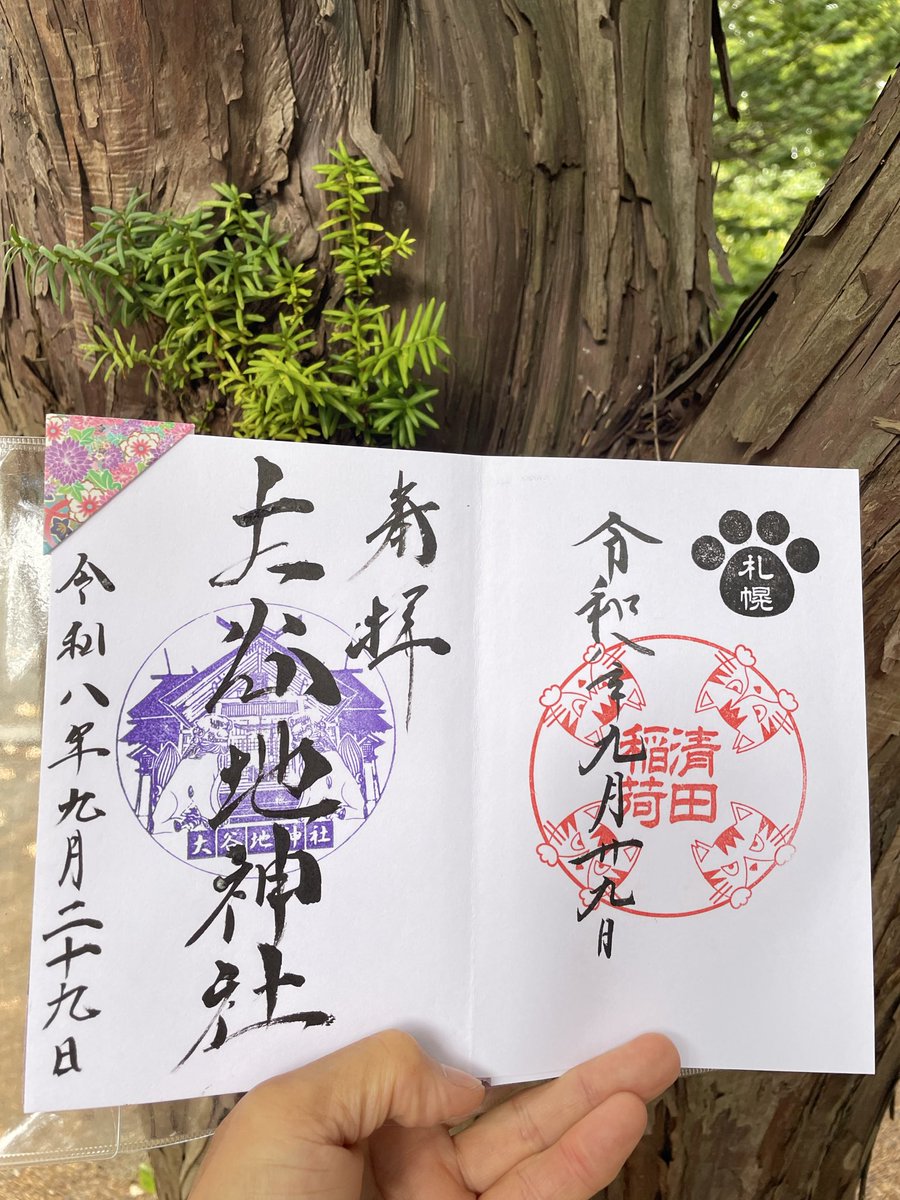 札幌
令和八年九月廿九日
清田
稲荷
奉拝
大谷地神社
大谷地神社
令和八年九月二十九日